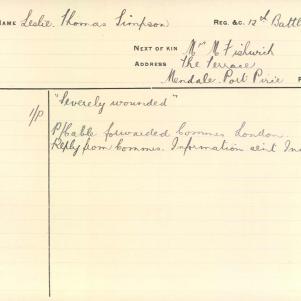 NAME Leslie Thomas Simpson REG. &C. 12th Battl
NEXT OF KIN Mrs M Fishwick
ADDRESS The Terrace
Port Pirie
"Severely wounded"
1/P P/Cable forwarded Commes London.
Reply from Commes. Information sent